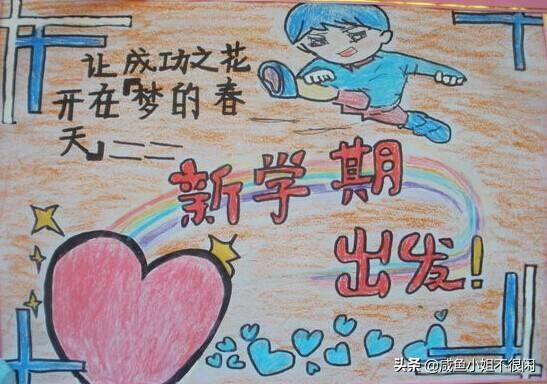 让成功之花
开在『梦的春
天』二二
新学期
出发！
头条 @咸鱼小姐不很闲